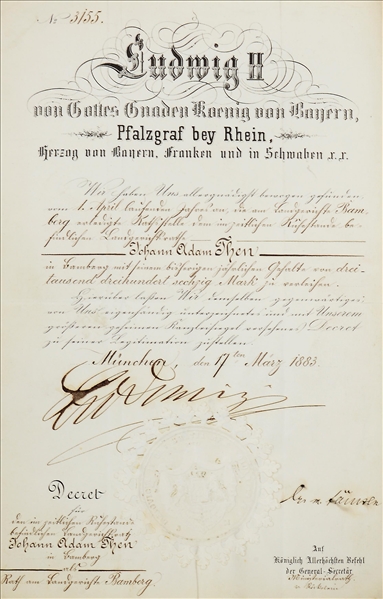 No 5155.
Ludwig II
von Gottes Gnaden Koenig von Bayern,
Pfalzgraf bey Rhein,
Herzog von Bayern, Franken und in Schwaben x.x.
Wir haben Uns allergnädigst bewogen gefunden
vom 1. April laufenden Jahres an, die am Landgerichte Bam-
berg erledigte Rathsstelle dem im zeitlichen Ruhestande be-
findlichen Landgerichtsrathe
Johann Adam Then
in Bamberg mit seinem bisherigen jährlichen Gehalte von drei-
tausend dreihundert sechzig Mark zu verleihen.
Hierüber lassen Wir demselben gegenwärtiges
von Uns eigenhändig unterzeichnetes und mit Unserem
größeren geheimen Kanzleisiegel versehenes Decret
zu seiner Legitimation zustellen.
München, den 17ten März 1883.
Decret
für
den im zeitlichen Ruhestande
befindlichen Landgerichtsrath
Johann Adam Then
in Bamberg
als
Rath am Landgerichte Bamberg.
Auf
Königlich Allerhöchsten Befehl
der General-Secretär
Ministerialrath